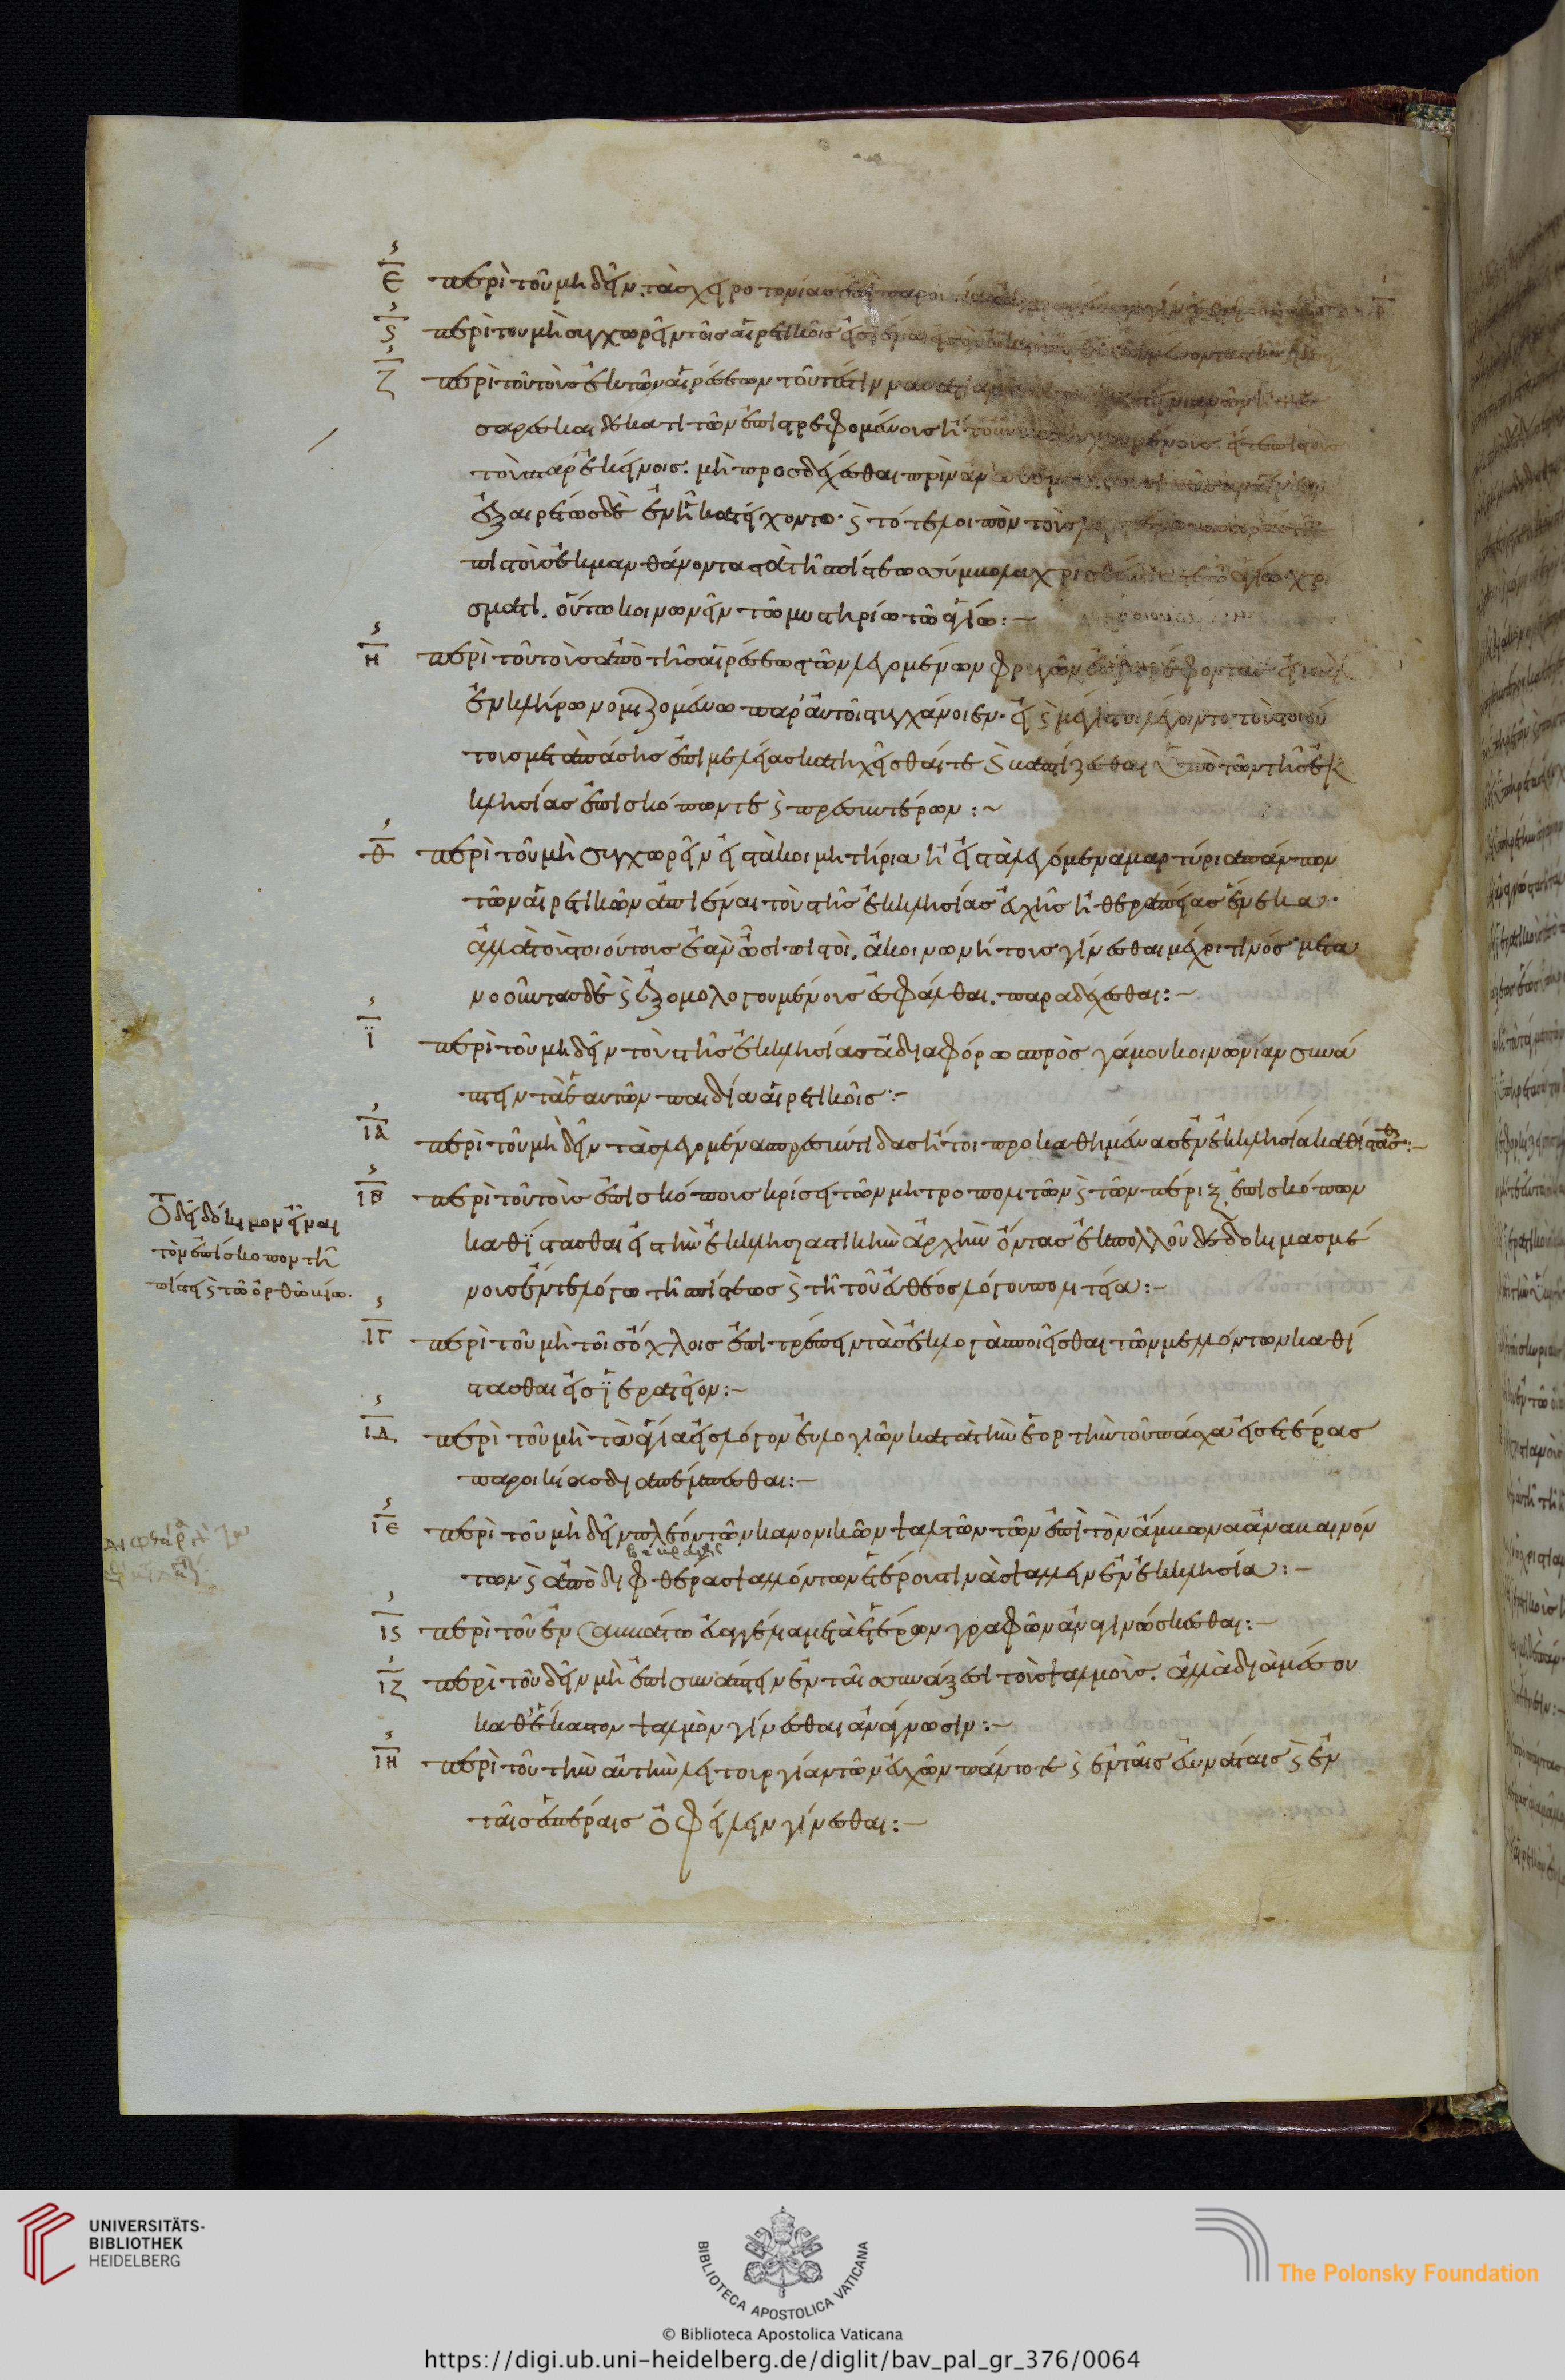 Ε περὶ τοῦ μὴ δεῖν τὰς χειροτονίας ἐπὶ
Ϛ περὶ τοῦ μὴ συγχωρεῖν τοῖς αἱρετικοῖς εἰσιέναι εἰς τὸν οἶκον
Ζ περὶ τοῦ τοὺς ἐκ τῶν αἱρέσεων τουτέστιν
σαρεσκαιδεκατιτῶν ἐπιστρεφομένους ἢ τοὺς
τοὺς παρ' ἐκείνοις. μὴ προσδέχεσθαι πρὶν
ἐξαιρέτως δὲ ἐν ἧ κατείχοντο. ϗ τότε λοιπὸν τοὺς
πιστοὺς ἐκμανθάνοντας τὰ τῆς πίστεως σύμβολα χρισθέντας τε τῶ ἁγίω χρί
σματι. οὕτω κοινωνεῖν τῶ μυστηρίω τῶ ἁγίω:-
Η περὶ τοῦ τοὺς ἀπὸ τῆς αἱρέσεως τῶν λεγομένων φρυγῶν ἐπιστρέφοντας εἰ καὶ
ἐν κλήρω νομιζομένω παρ' αὐτοῖς τυγχάνοιεν. εἰ ϗ μέγιστοι λέγοιντο τοὺς τοιού
τους μετὰ πάσης ἐπιμελείας κατηχεῖσθαί τε ϗ βαπτίζεσθαι ὑπὸ τῶν τῆς ἐκ
κλησίας ἐπισκόπων τε ϗ πρεσβυτέρων:~
Θ περὶ τοῦ μὴ συγχωρεῖν εἰς τὰ κοιμητήρια ἢ εἰς τὰ λεγόμενα μαρτύρια πάντων
τῶν αἱρετικῶν ἀπιέναι τοὺς τῆς ἐκκλησίας εὐχῆς ἢ θεραπείας ἕνεκα.
ἀλλὰ τοὺς τοιούτους ἐὰν ὦσι πιστοὶ. ἀκοινωνήτους γίνεσθαι μέχρι τινός. μετα
νοοῦντας δὲ ϗ ἐξομολογουμένους ἐσφάλθαι. παραδέχεσθαι:-
Ϊ περὶ τοῦ μὴ δεῖν τοὺς τῆς ἐκκλησίας ἀδιαφόρως πρὸς γάμου κοινωνίαν συνά
πτειν τὰ ἑαυτῶν παιδία αἱρετικοῖς:-
ΙΑ περὶ τοῦ μὴ δεῖν τὰς λεγομένας πρεσβύτιδας ἤτοι προκαθημένας ἐν ἐκκλησία καθίστασθ:-
ΙΒ περὶ τοῦ τοὺς ἐπισκόπους κρίσει τῶν μητροπολιτῶν ϗ τῶν πέριξ ἐπισκόπων
καθΐστασθαι εἰς τὴν ἐκκλησιαστικὴν ἀρχὴν ὄντας ἐκ πολλοῦ δεδοκιμασμέ
νους ἔν τε λόγω τῆς πίστεως ϗ τῆ τοῦ εὐθέος λόγου πολιτεία:-
Ὅτι δεῖ δόκιμον εἶναι
τὸν ἐπίσκοπον τῆ
πίστει ϗ τῶ ὀρθῶ βίω.
ΙΓ περὶ τοῦ μὴ τοῖς ὄχλοις ἐπιτρέπειν τὰς ἐκλογὰς ποιεῖσθαι τῶν μελλόντων καθί
στασθαι εἰς ϊερατεῖον:-
ΙΔ περὶ τοῦ μὴ τὰ ἅγια εἰς λόγον εὐλογιῶν κατὰ τὴν ἑορτὴν τοῦ πάσχα εἰς ἑτέρας
παροικίας διαπέμπεσθαι:-
ΙΕ περὶ τοῦ μὴ δεῖν πλέον τῶν κανονικῶν ψαλτῶν τῶν ἐπὶ τὸν ἄμβωνα ἀναβαινόν
των ϗ ἀπὸ διφθέρας ψαλλόντων ἑτέρους τινὰς ψάλλειν ἐν ἐκκλησία:-
ΙϚ περὶ τοῦ ἐν σαββάτω εὐαγγέλια μετὰ ἑτέρων γραφῶν ἀναγινώσκεσθαι:-
ΙΖ περὶ τοῦ δεῖν μὴ ἐπισυνάπτειν ἐν ταῖς συνάξεσι τοὺς ψαλμούς. ἀλλὰ διὰ μέσου
καθ' ἕκαστον ψαλμὸν γίνεσθαι ἀνάγνωσιν:-
ΙΗ περὶ τοῦ τὴν αὐτὴν λειτουργίαν τῶν εὐχῶν πάντοτε ϗ ἐν ταῖς ἐννάταις ϗ ἐν
ταῖς ἑσπέραις ὀφείλειν γίνεσθαι:-
UNIVERSITÄTS-
BIBLIOTHEK
HEIDELBERG
BIBLIOTECA APOSTOLICA VATICANA
The Polonsky Foundation
© Biblioteca Apostolica Vaticana
https://digi.ub.uni-heidelberg.de/diglit/bav_pal_gr_376/0064